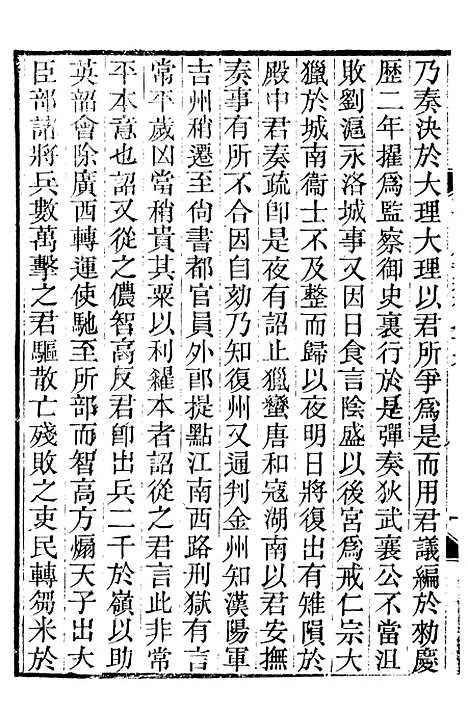 乃奏決於大理大理以君所爭爲是而用君議編於勑慶
歴二年擢爲監察御史裏行於是彈奏狄武襄公不當沮
敗劉滬永洛城事又因日食言陰盛以後宮爲戒仁宗大
獵於城南衞士不及整而歸以夜明日將復出有雉隕於
殿中君奏疏卽是夜有詔止獵蠻唐和寇湖南以君安撫
奏事有所不合因自劾乃知復州又通判金州知漢陽軍
吉州稍遷至尙書都官員外郎提點江南西路刑獄有言
常平歲凶當稍貴其粟以利糴本者詔從之君言此非常
平本意也詔又從之儂智高反君卽出兵二千於嶺以助
英韶會除廣西轉運使馳至所部而智高方煽天子出大
臣部諸將兵數萬擊之君驅散亡殘敗之吏民轉芻米於